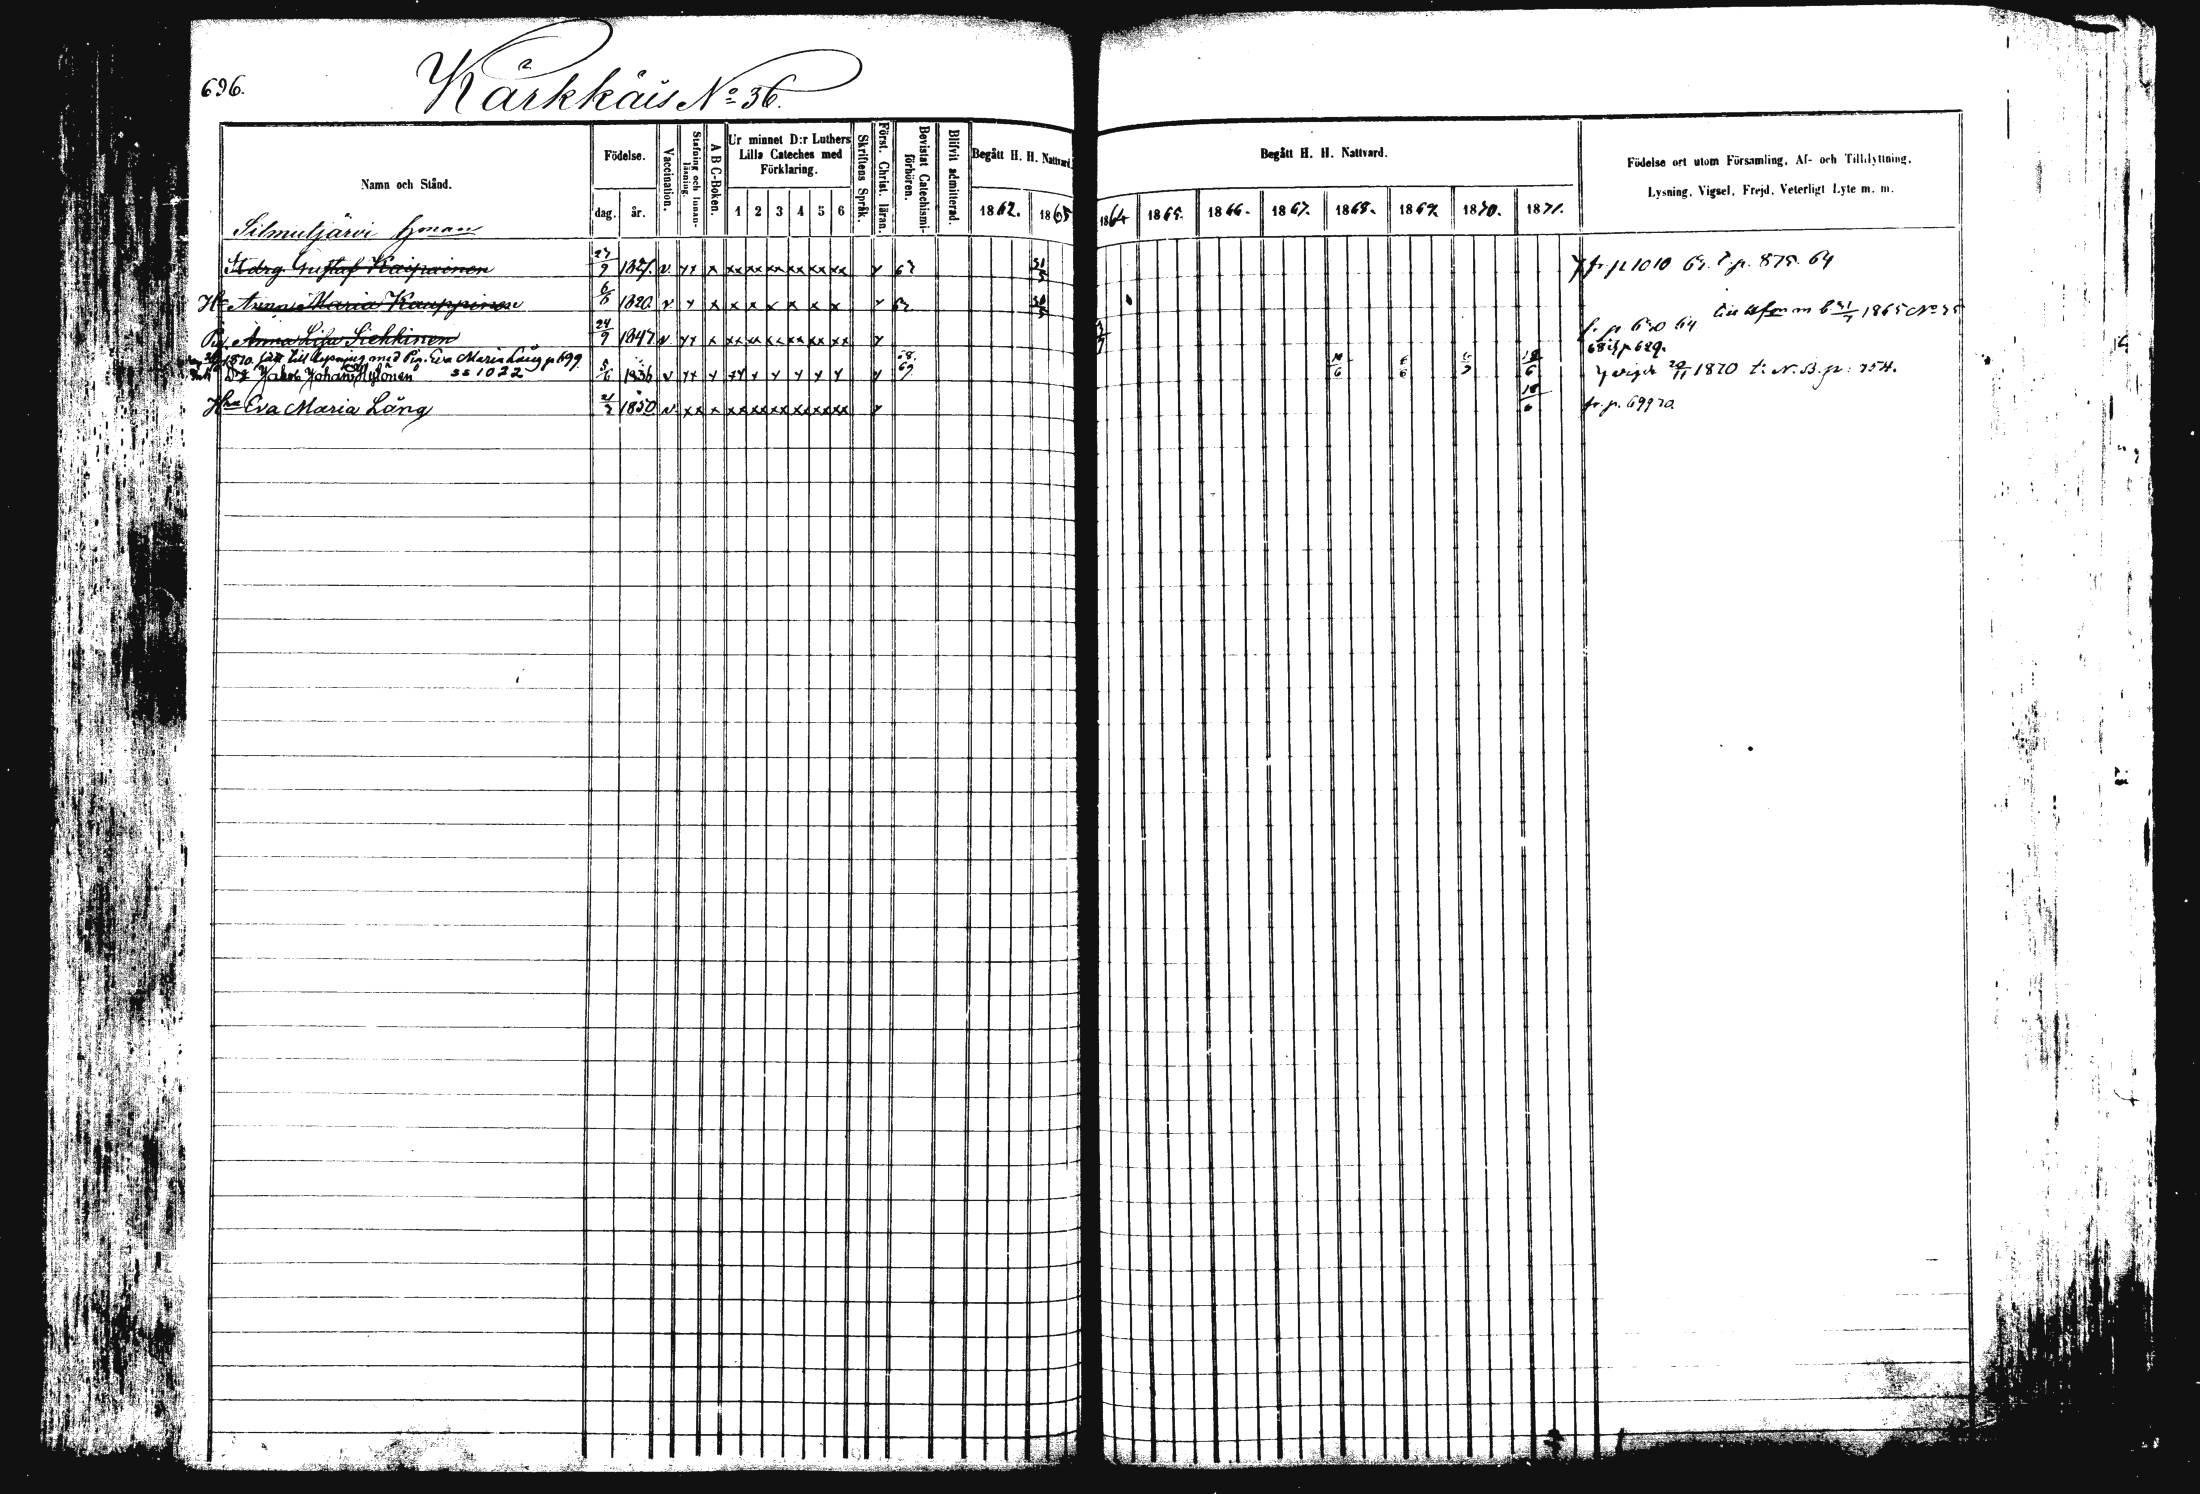 696.
Kärkkäis No 36.
Namn och Stånd.
Födelse.
dag. år.
Vaccination.
Stafning och Innan-läsning.
A B C-Boken.
Ur minnet D:r Luthers Lilla Cateches med Förklaring.
1 2 3 4 5 6
Skriftens Språk.
Först. Christ. läran.
Bevistat Catechismi-förhören.
Blifvit admitterad.
Begått H. H. Nattvard.
1862. 1863
Begått H. H. Nattvard.
1864 1865. 1866. 1867. 1868. 1869. 1870. 1871.
Födelse ort utom Församling, Af- och Tillflyttning,
Lysning, Vigsel, Frejd, Veterligt Lyte m. m.
Silmutjärvi
Gustaf Kaipainen 27/9 1821. v. xx x xx xx xx xx xx xx x 62 31/5 fr. p 1010 62. t. p. 875. 64
Hu Anna Maria Kauppinen 6/6 1820. v x x x x x x x x x 62 31/5 1865 No 35
Pig. Anna Lisa Sichkinen 24/9 1847 v xx x xx xx xx xx xx xx x fr. p 650 64
68 p 629.
1870. till lysning med Pig. Eva Maria Lång p 699
Dg Jakob Johan Hytönen ss 1022 5/6 1836 v xx x xx x x x x x x 68. 69 10/6 6/6 18/6 20/11 1870 t. N. B. p. 754.
Hu Eva Maria Lång 21/2 1850 v. xx x xx xx xx xx xx xx x 18/6 fr. p. 699 70.